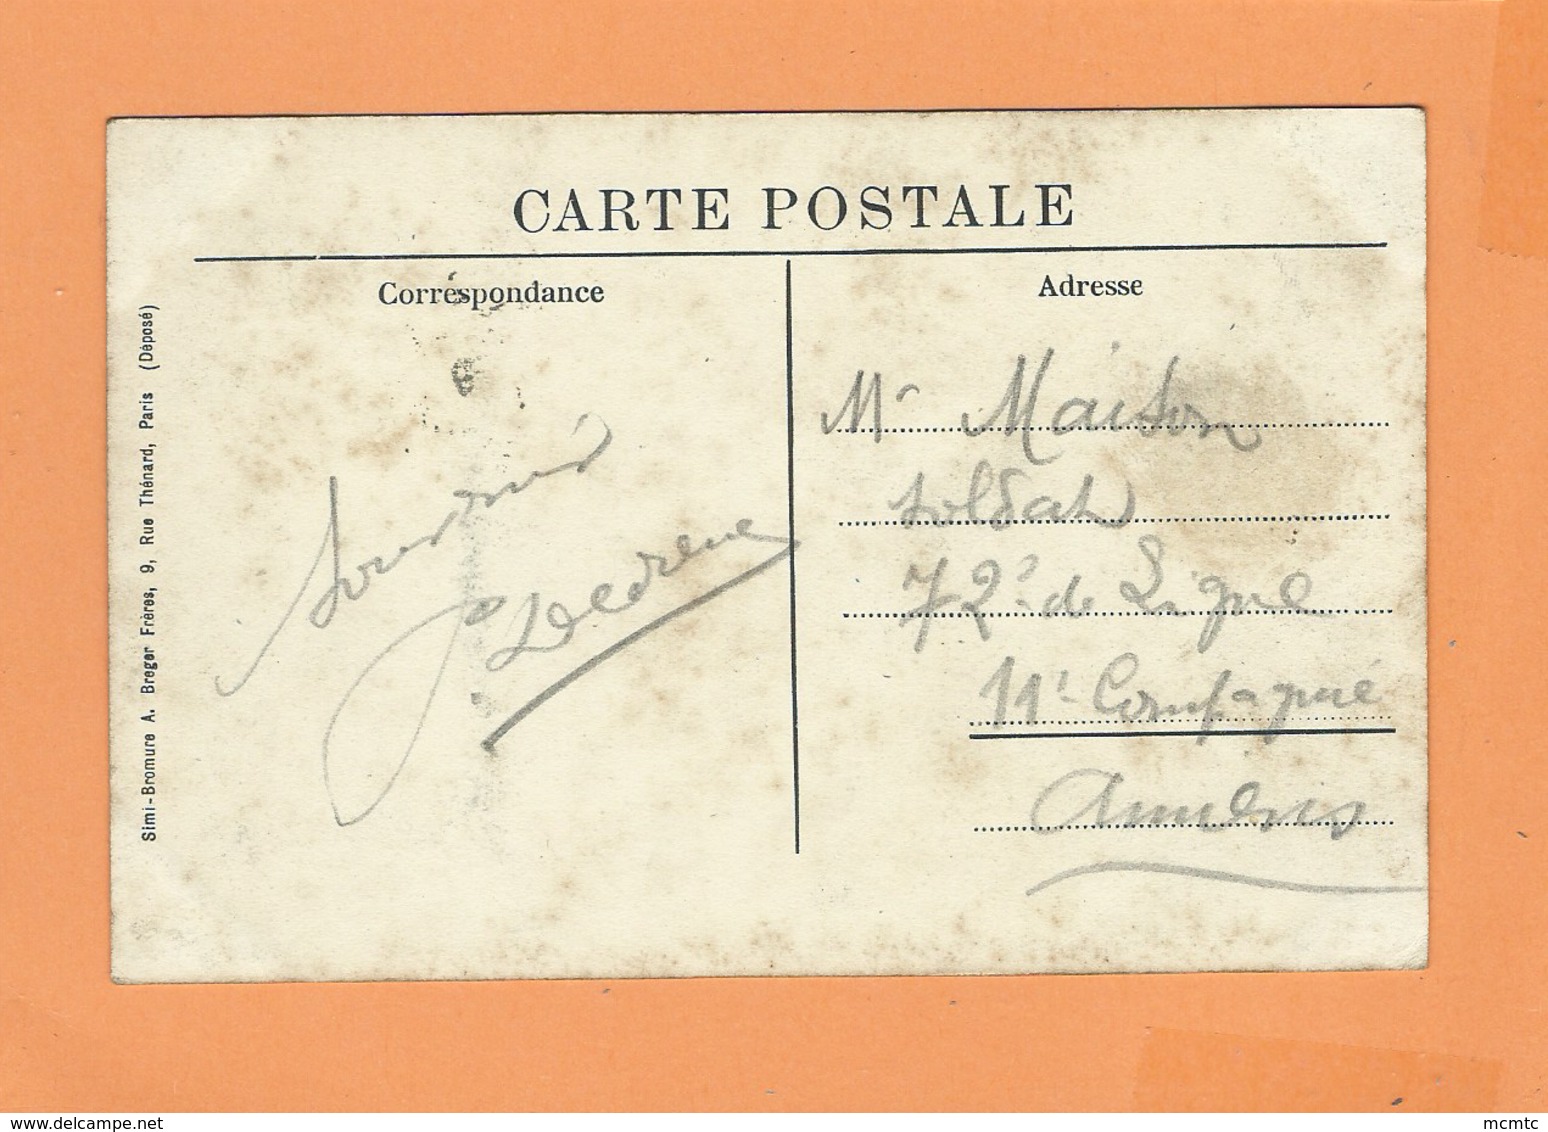 CARTE POSTALE
Correspondance
Adresse
Simi-Bromure A. Breger Frères, 9, Rue Thénard, Paris (Déposé)
Mr Maison
soldat
72e de Ligne
11e Compagnie
Amiens
www.delcampe.net
mcmtc